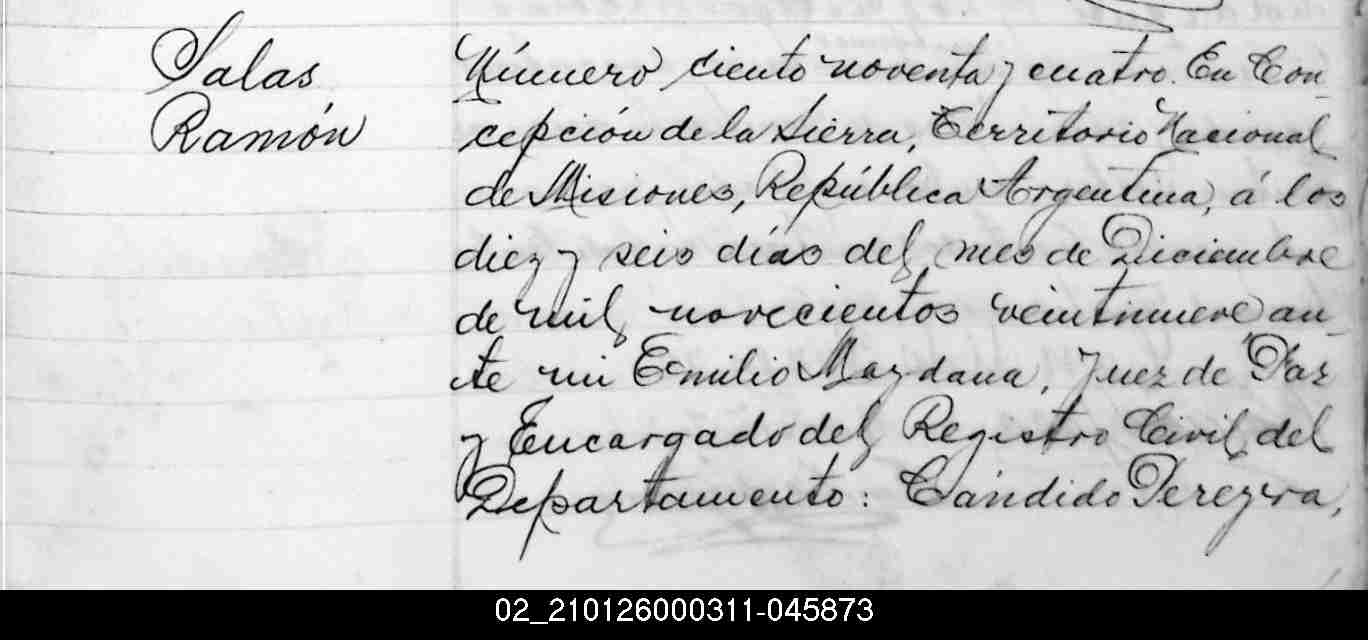 Salas
Ramón
Número ciento noventa y cuatro. En Con-
cepción de la Sierra, Territorio Nacional
de Misiones, República Argentina, á los
diez y seis días del mes de Diciembre
de mil novecientos veintinueve, an-
te mi Emilio Maydana, Juez de Paz
y Encargado del Registro Civil del
Departamento: Cándido Pereyra,
02_210126000311-045873